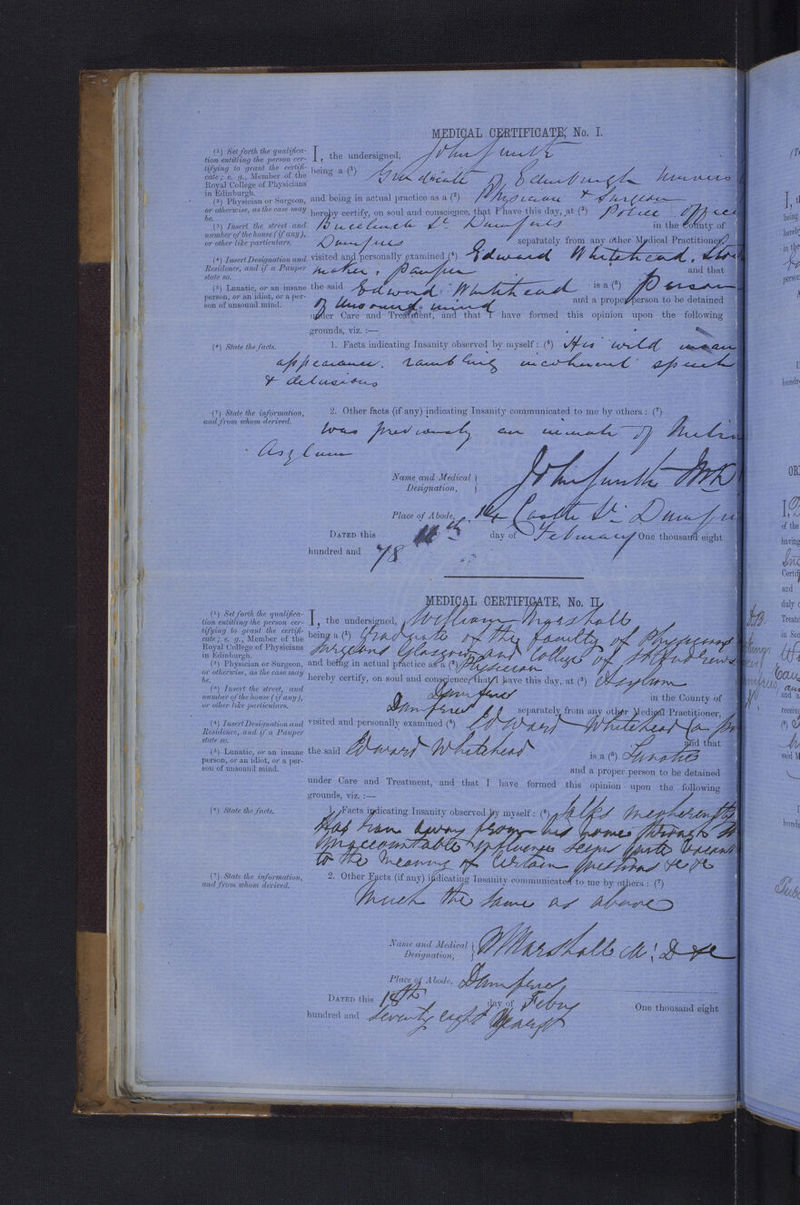 MEDICAL CERTIFICATE, No. I.
(1) Set forth the qualifica-
tion entitling the person cer-
tifying to grant the certifi-
cate; e. g., Member of the
Royal College of Physicians
in Edinburgh.
(2) Physician or Surgeon,
or otherwise, as the case may
be.
(3) Insert the street and
number of the house (if any),
or other like particulars.
(4) Insert Designation and
Residence, and if a Pauper
state so.
(5) Lunatic, or an insane
person, or an idiot, or a per-
son of unsound mind.
I, the undersigned, John Smith
being a (1) Graduate of Edinburgh
and being in actual practice as a (2) Physician & Surgeon
hereby certify, on soul and conscience, that I have this day, at (3) Police Office
Buccleuch St Dumfries in the County of
Dumfries separately from any other Medical Practitioner,
visited and personally examined (4) Edward Whitehead,
maker, pauper and that
the said Edward Whitehead is a (5) Person
of unsound mind and a proper person to be detained
under Care and Treatment, and that I have formed this opinion upon the following
grounds, viz. :—
(6) State the facts.
1. Facts indicating Insanity observed by myself: (6) His wild
appearance. rambling incoherent speech
& delusions
(7) State the information,
and from whom derived.
2. Other facts (if any) indicating Insanity communicated to me by others: (7)
was previously an inmate of
Asylum
Name and Medical
Designation, John Smith
Place of Abode, Castle St Dumfries
DATED this day of February One thousand eight
hundred and 78
MEDICAL CERTIFICATE, No. II.
(1) Set forth the qualifica-
tion entitling the person cer-
tifying to grant the certifi-
cate; e. g., Member of the
Royal College of Physicians
in Edinburgh.
(2) Physician or Surgeon,
or otherwise, as the case may
be.
(3) Insert the street, and
number of the house (if any),
or other like particulars.
(4) Insert Designation and
Residence, and if a Pauper
state so.
(5) Lunatic, or an insane
person, or an idiot, or a per-
son of unsound mind.
I, the undersigned, William Marshall
being a (1) Graduate of the faculty of Physicians
Surgeons Glasgow and College of St Andrews
and being in actual practice as a (2) Physician
hereby certify, on soul and conscience, that I have this day, at (3) Asylum
Dumfries in the County of
Dumfries separately from any other Medical Practitioner,
visited and personally examined (4) Edward Whitehead
and that
the said Edward Whitehead is a (5) Lunatic
and a proper person to be detained
under Care and Treatment, and that I have formed this opinion upon the following
grounds, viz. :—
(6) State the facts.
1. Facts indicating Insanity observed by myself: (6)
Has away from his home through
unaccountable influences seems quite
to the meaning of certain questions &c &c
(7) State the information,
and from whom derived.
2. Other Facts (if any) indicating Insanity communicated to me by others: (7)
Much the same as above
Name and Medical
Designation, W Marshall M.D &c
Place of Abode, Dumfries
DATED this day of Feby One thousand eight
hundred and seventy eight